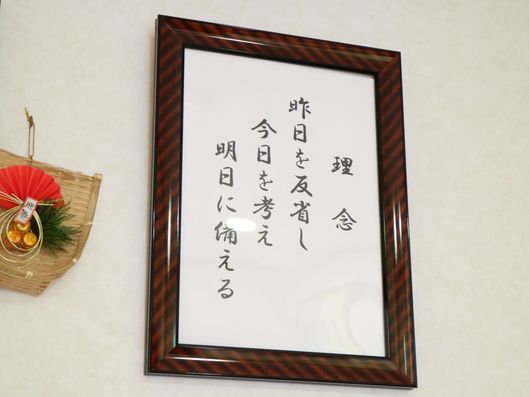 理念
昨日を反省し
今日を考え
明日に備える
迎春